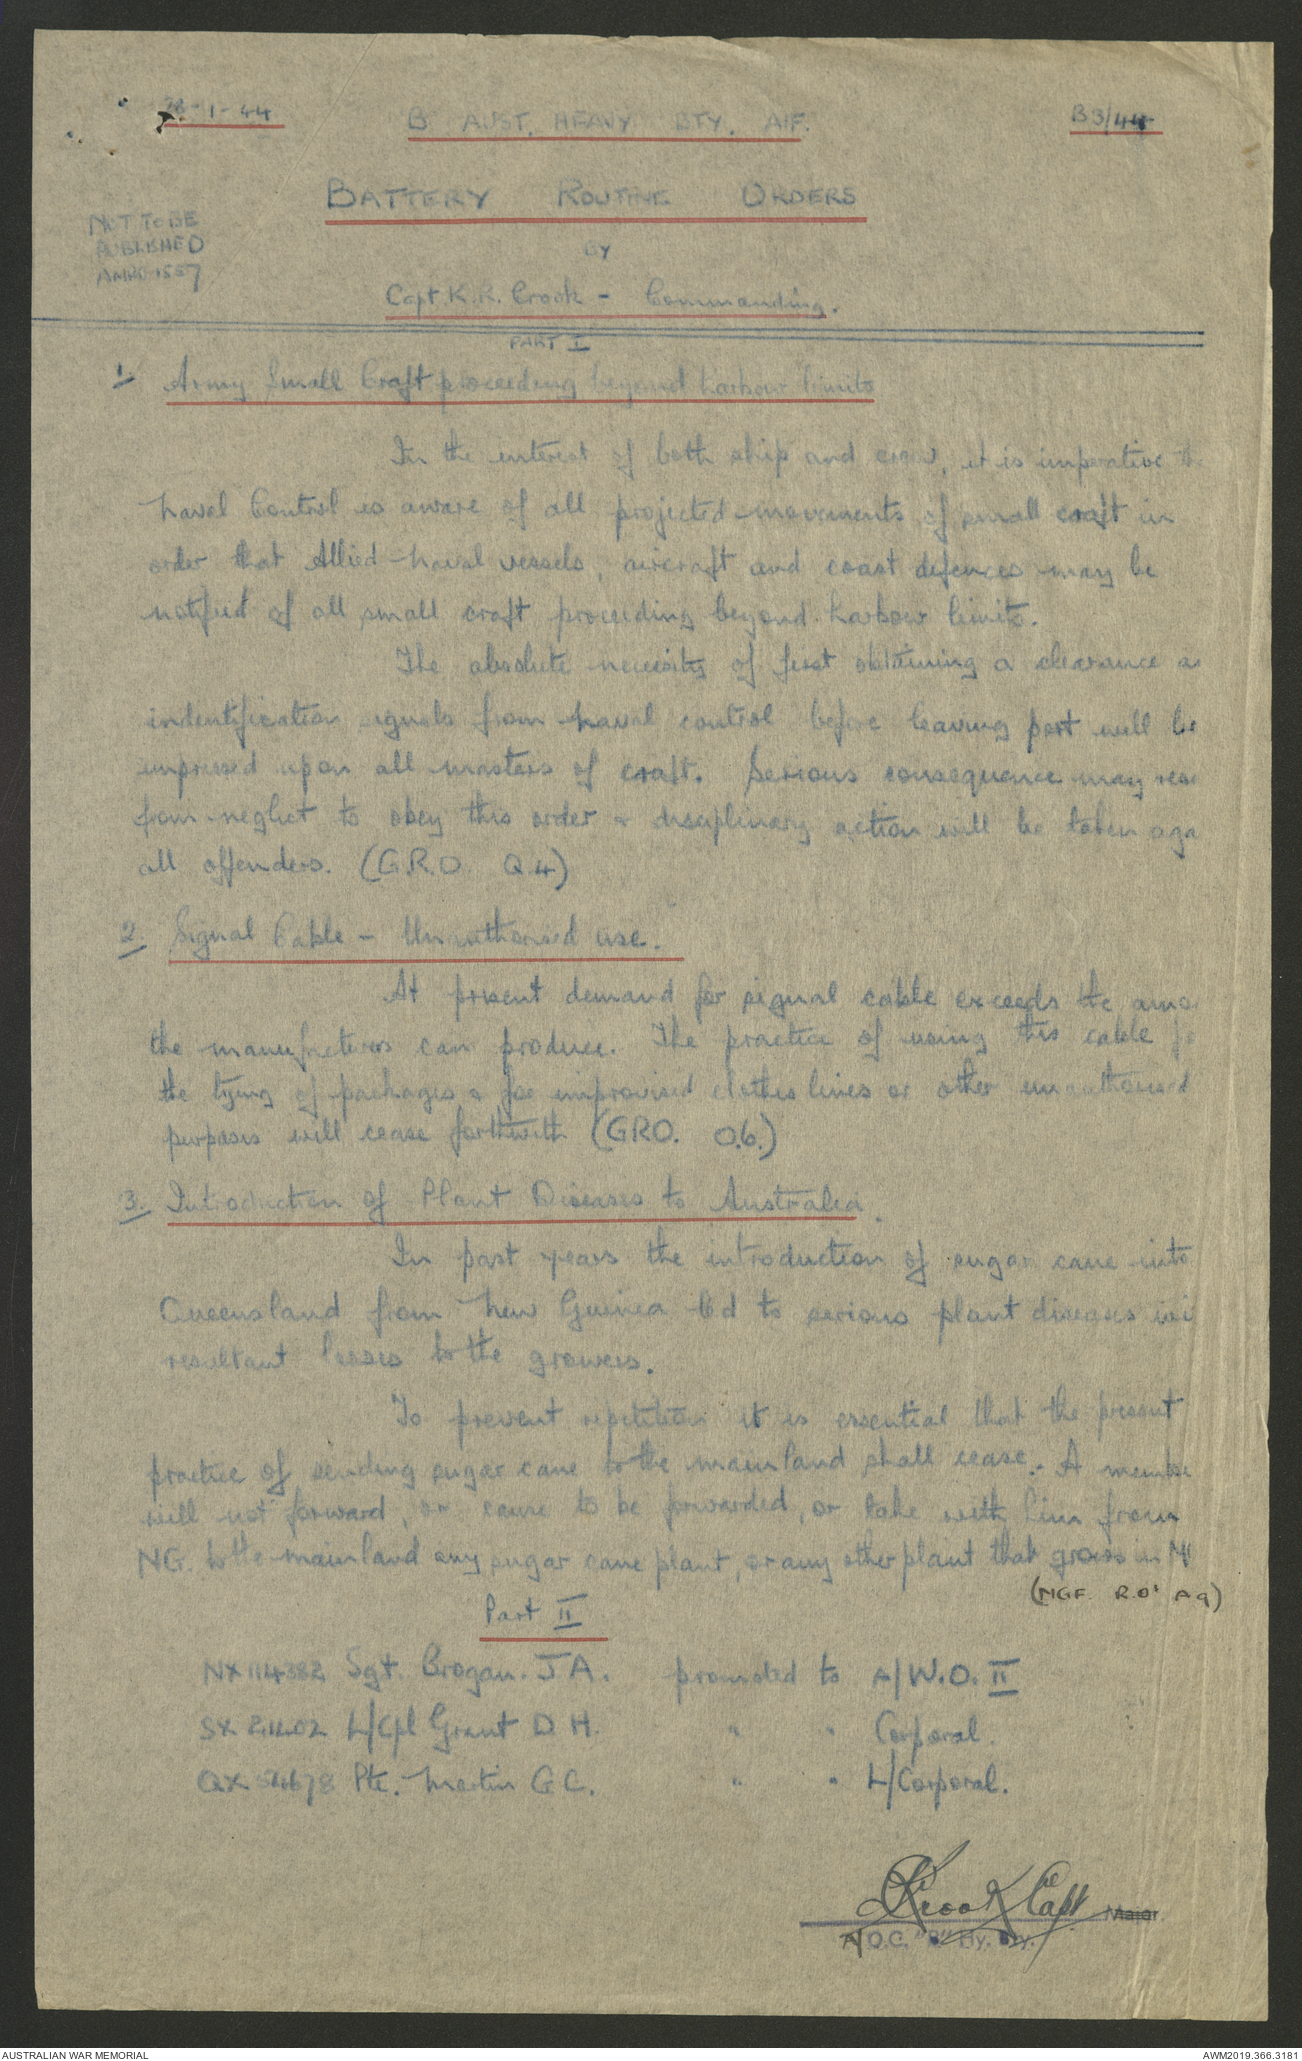 28-1-44
B AUST. HEAVY BTY. AIF.
B3/44
BATTERY ROUTINE ORDERS
NOT TO BE
PUBLISHED
AMRO 1557
BY
Capt. K.R. Crook - Commanding.
PART I
1. Army Small Craft proceeding beyond harbour limits
In the interest of both ship and crew, it is imperative
Naval Control is aware of all projected movements of small craft in
order that Allied Naval vessels, aircraft and coast defences may be
notified of all small craft proceeding beyond harbour limits.
The absolute necessity of first obtaining a clearance
indentification signals from Naval control before leaving port will be
impressed upon all masters of craft. Serious consequence may
from neglect to obey this order & disciplinary action will be taken aga
all offenders. (G.R.O. Q.4)
2. Signal Cable - Unauthorised use.
At present demand for signal cable exceeds the amo
the manufacturers can produce. The practice of using this cable fo
the tying of packages & for improvised clothes lines or other unauthorised
purposes will cease forthwith (GRO. O.6.)
3. Introduction of Plant Diseases to Australia.
In past years the introduction of sugar cane into
Queensland from New Guinea led to serious plant diseases wi
resultant losses to the growers.
To prevent repetition it is essential that the present
practice of sending sugar cane to the mainland shall cease. A membe
will not forward, or cause to be forwarded, or take with him from
NG. to the mainland any sugar cane plant, or any other plant that grows in
(NGF. R.O' A9)
Part II
NX114382 Sgt. Brogan. J A. promoted to A/W.O. II
L/Cpl Grant D. H. " " Corporal.
Pte. Martin G C. " " L/Corporal.
KCrook Capt Major.
A/O.C. "B" Hy. Bty.
AUSTRALIAN WAR MEMORIAL
AWM2019.366.3181